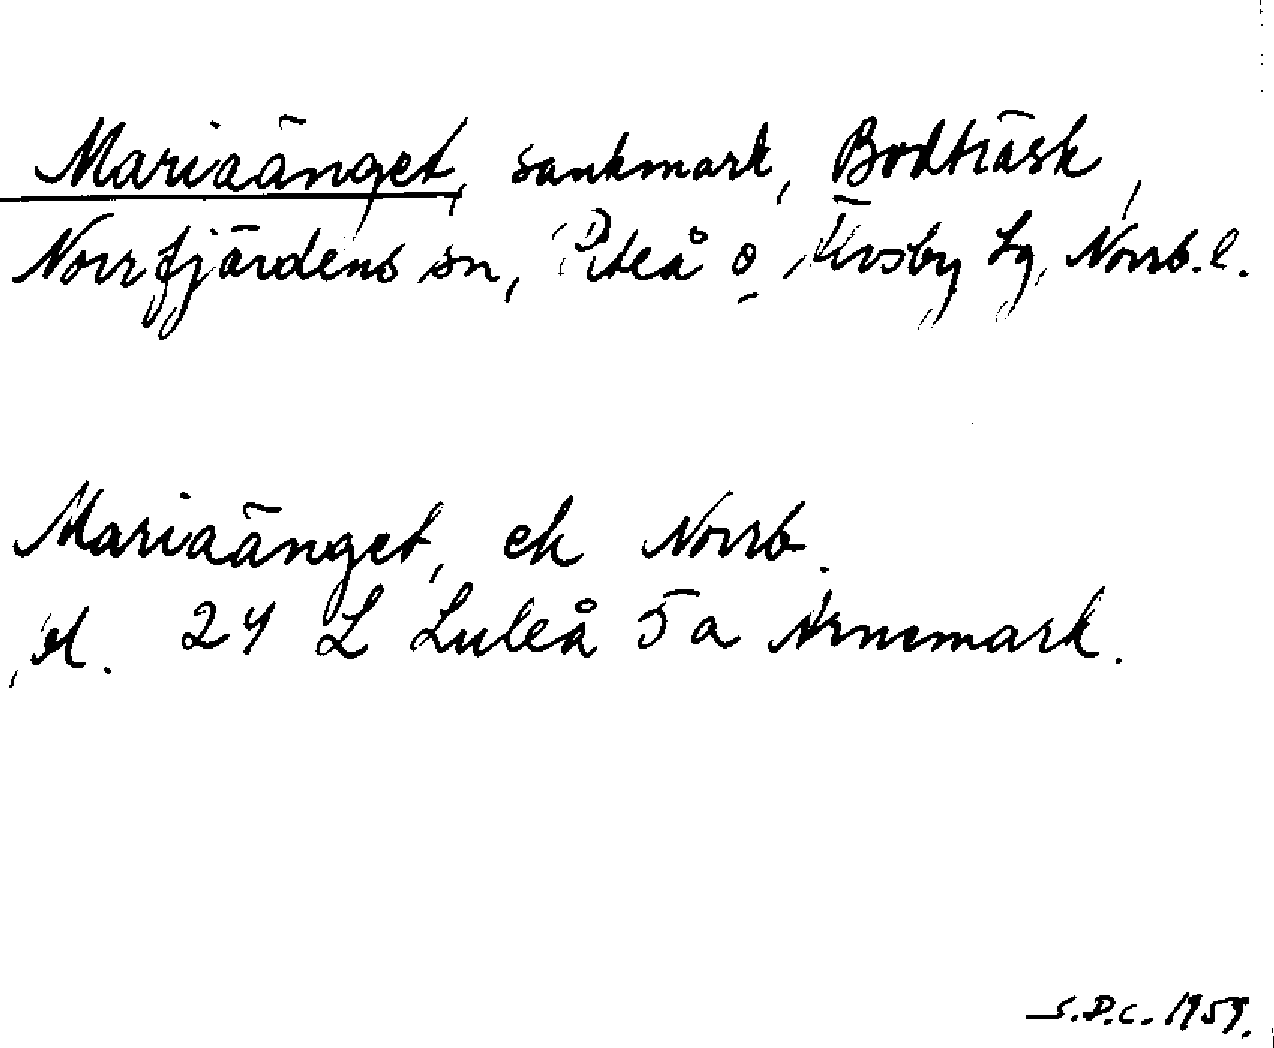 Mariaänget, sankmark, Bodträsk,
Norrfjärdens sn, Piteå o Älvsby tg, Norrb. l.
Mariaänget, ek Norrb.
bl. 24 L Luleå 5 a Arnemark.
S.D.C. 1959.